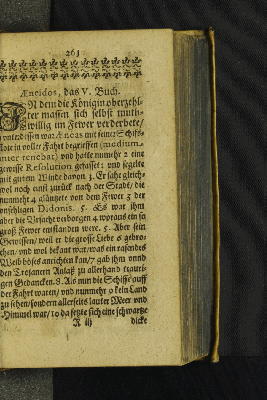 261
Æneidos, das V. Buch.
IN dem die Königin oberzehl-
ter massen sich selbst muth-
willig im Fewer verderbete/
unterdissen war Æneas mit seiner Schiffs-
flote in voller Fahrt begrieffen (medium
iter tenebat) und hatte numehr 2 eine
gewisse Resolution gefasset: und segelte
mit gutem Winde davon 3. Er sahe gleich-
wol noch einst zurück nach der Stadt/ die
nunmehr 4 gläntzete von dem Fewer der
unseligen Didonis. 5. Es war ihm
aber die Ursache verborgen 4 woraus ein so
groß Fewer entstanden were. 5. Aber sein
Gewissen/ weil er die grosse Liebe 6 gebro-
chen/ und wol bekant war/ was ein rasendes
Weib böses anrichten kan/ 7 gab ihm und
den Trojanern Anlaß zu allerhand trauri-
gen Gedancken. 8. Als nun die Schiffe auff
der Fahrt waren/ und nunmehr 9 kein Land
zu sehen/ sondern allerseits lauter Meer und
Himmel war/ 10 da setzte sich eine schwartze
R iij dicke